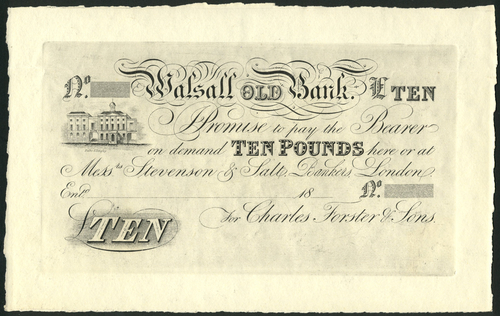 No. Walsall OLD Bank. £TEN
I Promise to pay the Bearer
on demand TEN POUNDS here or at
Messrs Stevenson & Salt, Bankers London
Entd 18 No.
£TEN For Charles Forster & Sons.